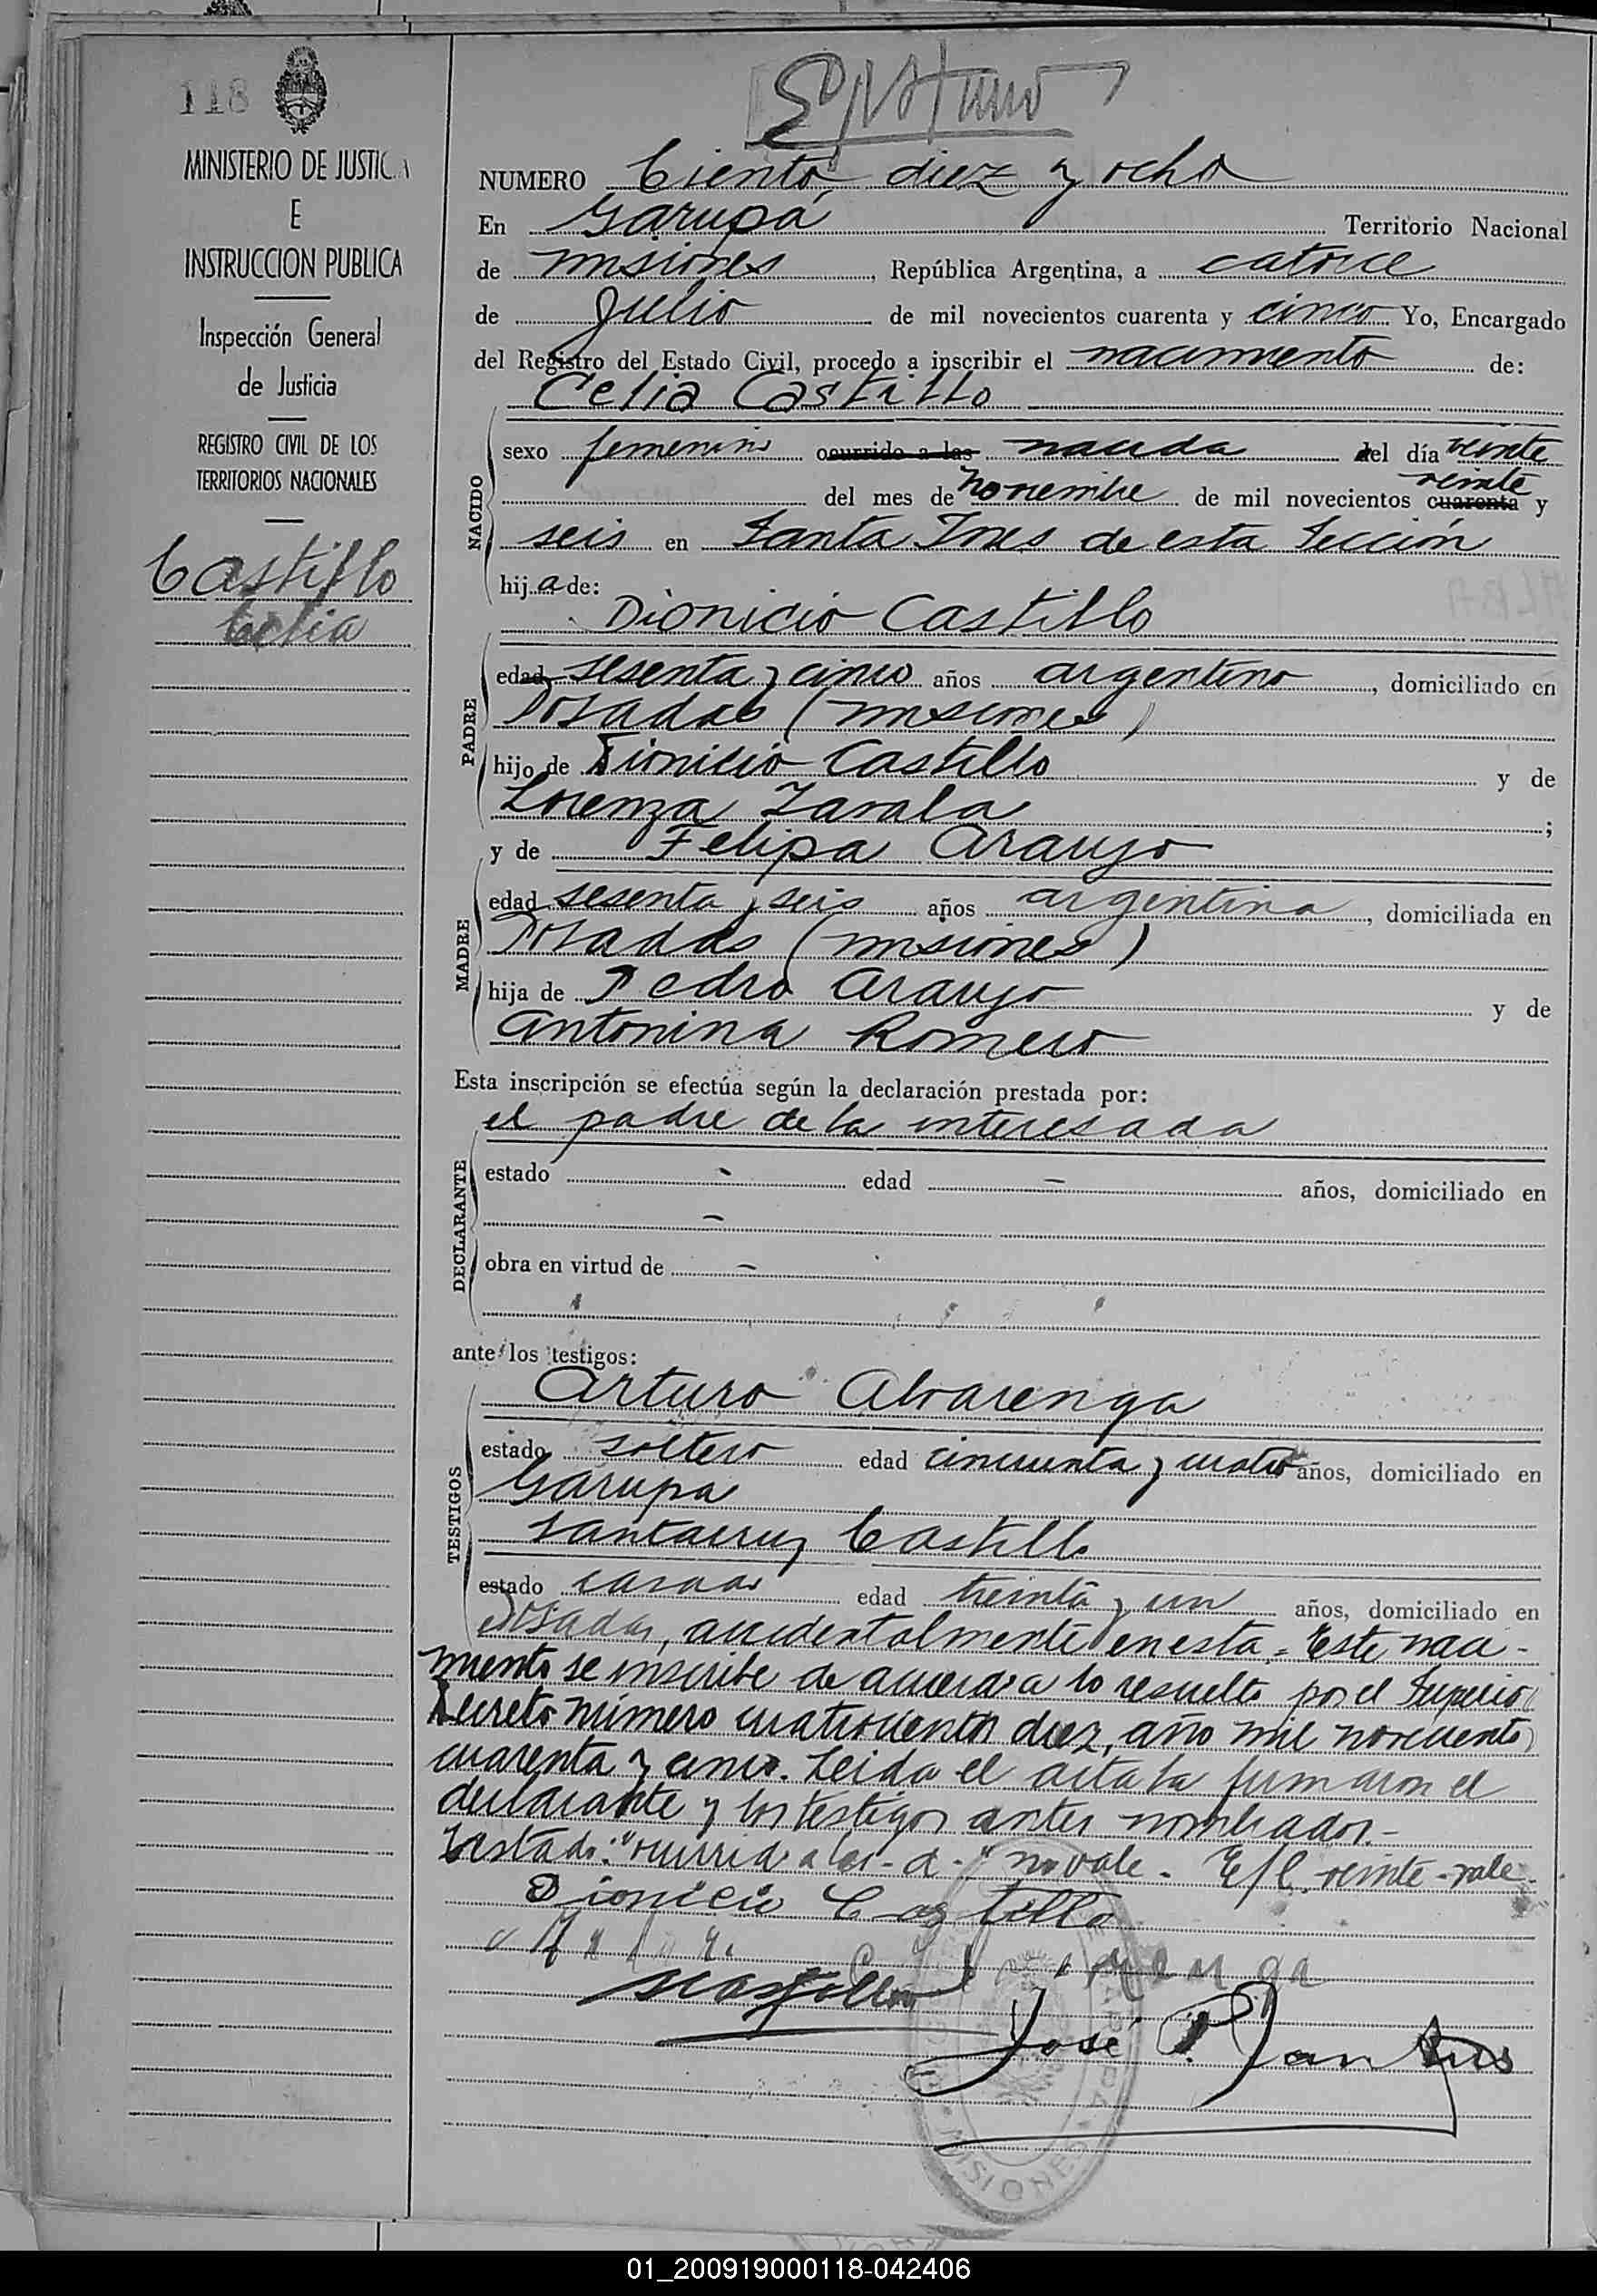 118
MINISTERIO DE JUSTICIA
E
INSTRUCCION PUBLICA
Inspección General
de Justicia
REGISTRO CIVIL DE LOS
TERRITORIOS NACIONALES
Castillo
Celia
NUMERO Ciento diez y ocho
En Garupá Territorio Nacional
de misiones, República Argentina, a catorce
de Julio de mil novecientos cuarenta y cinco Yo, Encargado
del Registro del Estado Civil, procedo a inscribir el nacimiento de:
Celia Castillo
NACIDO
sexo femenino ocurrido a las nacida del día veinte
del mes de Noviembre de mil novecientos cuarenta veinte y
seis en Santa Ines de esta Sección
hija de:
Dionicio Castillo
PADRE
edad sesenta y cinco años argentino, domiciliado en
Posadas (misiones)
hijo de Dionicio Castillo y de
Lorenza Zavala;
y de Felipa Araujo
MADRE
edad sesenta y seis años argentina, domiciliada en
Posadas (misiones)
hija de Pedro Araujo y de
Antonina Romero
Esta inscripción se efectúa según la declaración prestada por:
el padre de la interesada
DECLARANTE
estado - edad - años, domiciliado en
-
obra en virtud de -
ante los testigos:
Arturo Alvarenga
TESTIGOS
estado soltero edad cincuenta y cuatro años, domiciliado en
Garupa
Santacruz Castillo
estado casado edad treinta y un años, domiciliado en
Posadas, accidentalmente en esta.- Este naci-
miento se inscribe de acuerdo a lo resuelto por el Superior
Decreto número cuatrocientos diez, año mil novecientos
cuarenta y cinco. Leida el acta la firmaron el
declarante y los testigos antes nombrados.-
Testado: "ocurrido a las - d -" no vale - E/l. veinte - vale.
Dionicio Castillo
Arturo Alvarenga
SCastillo
José P.
MISIONES
01_200919000118-042406